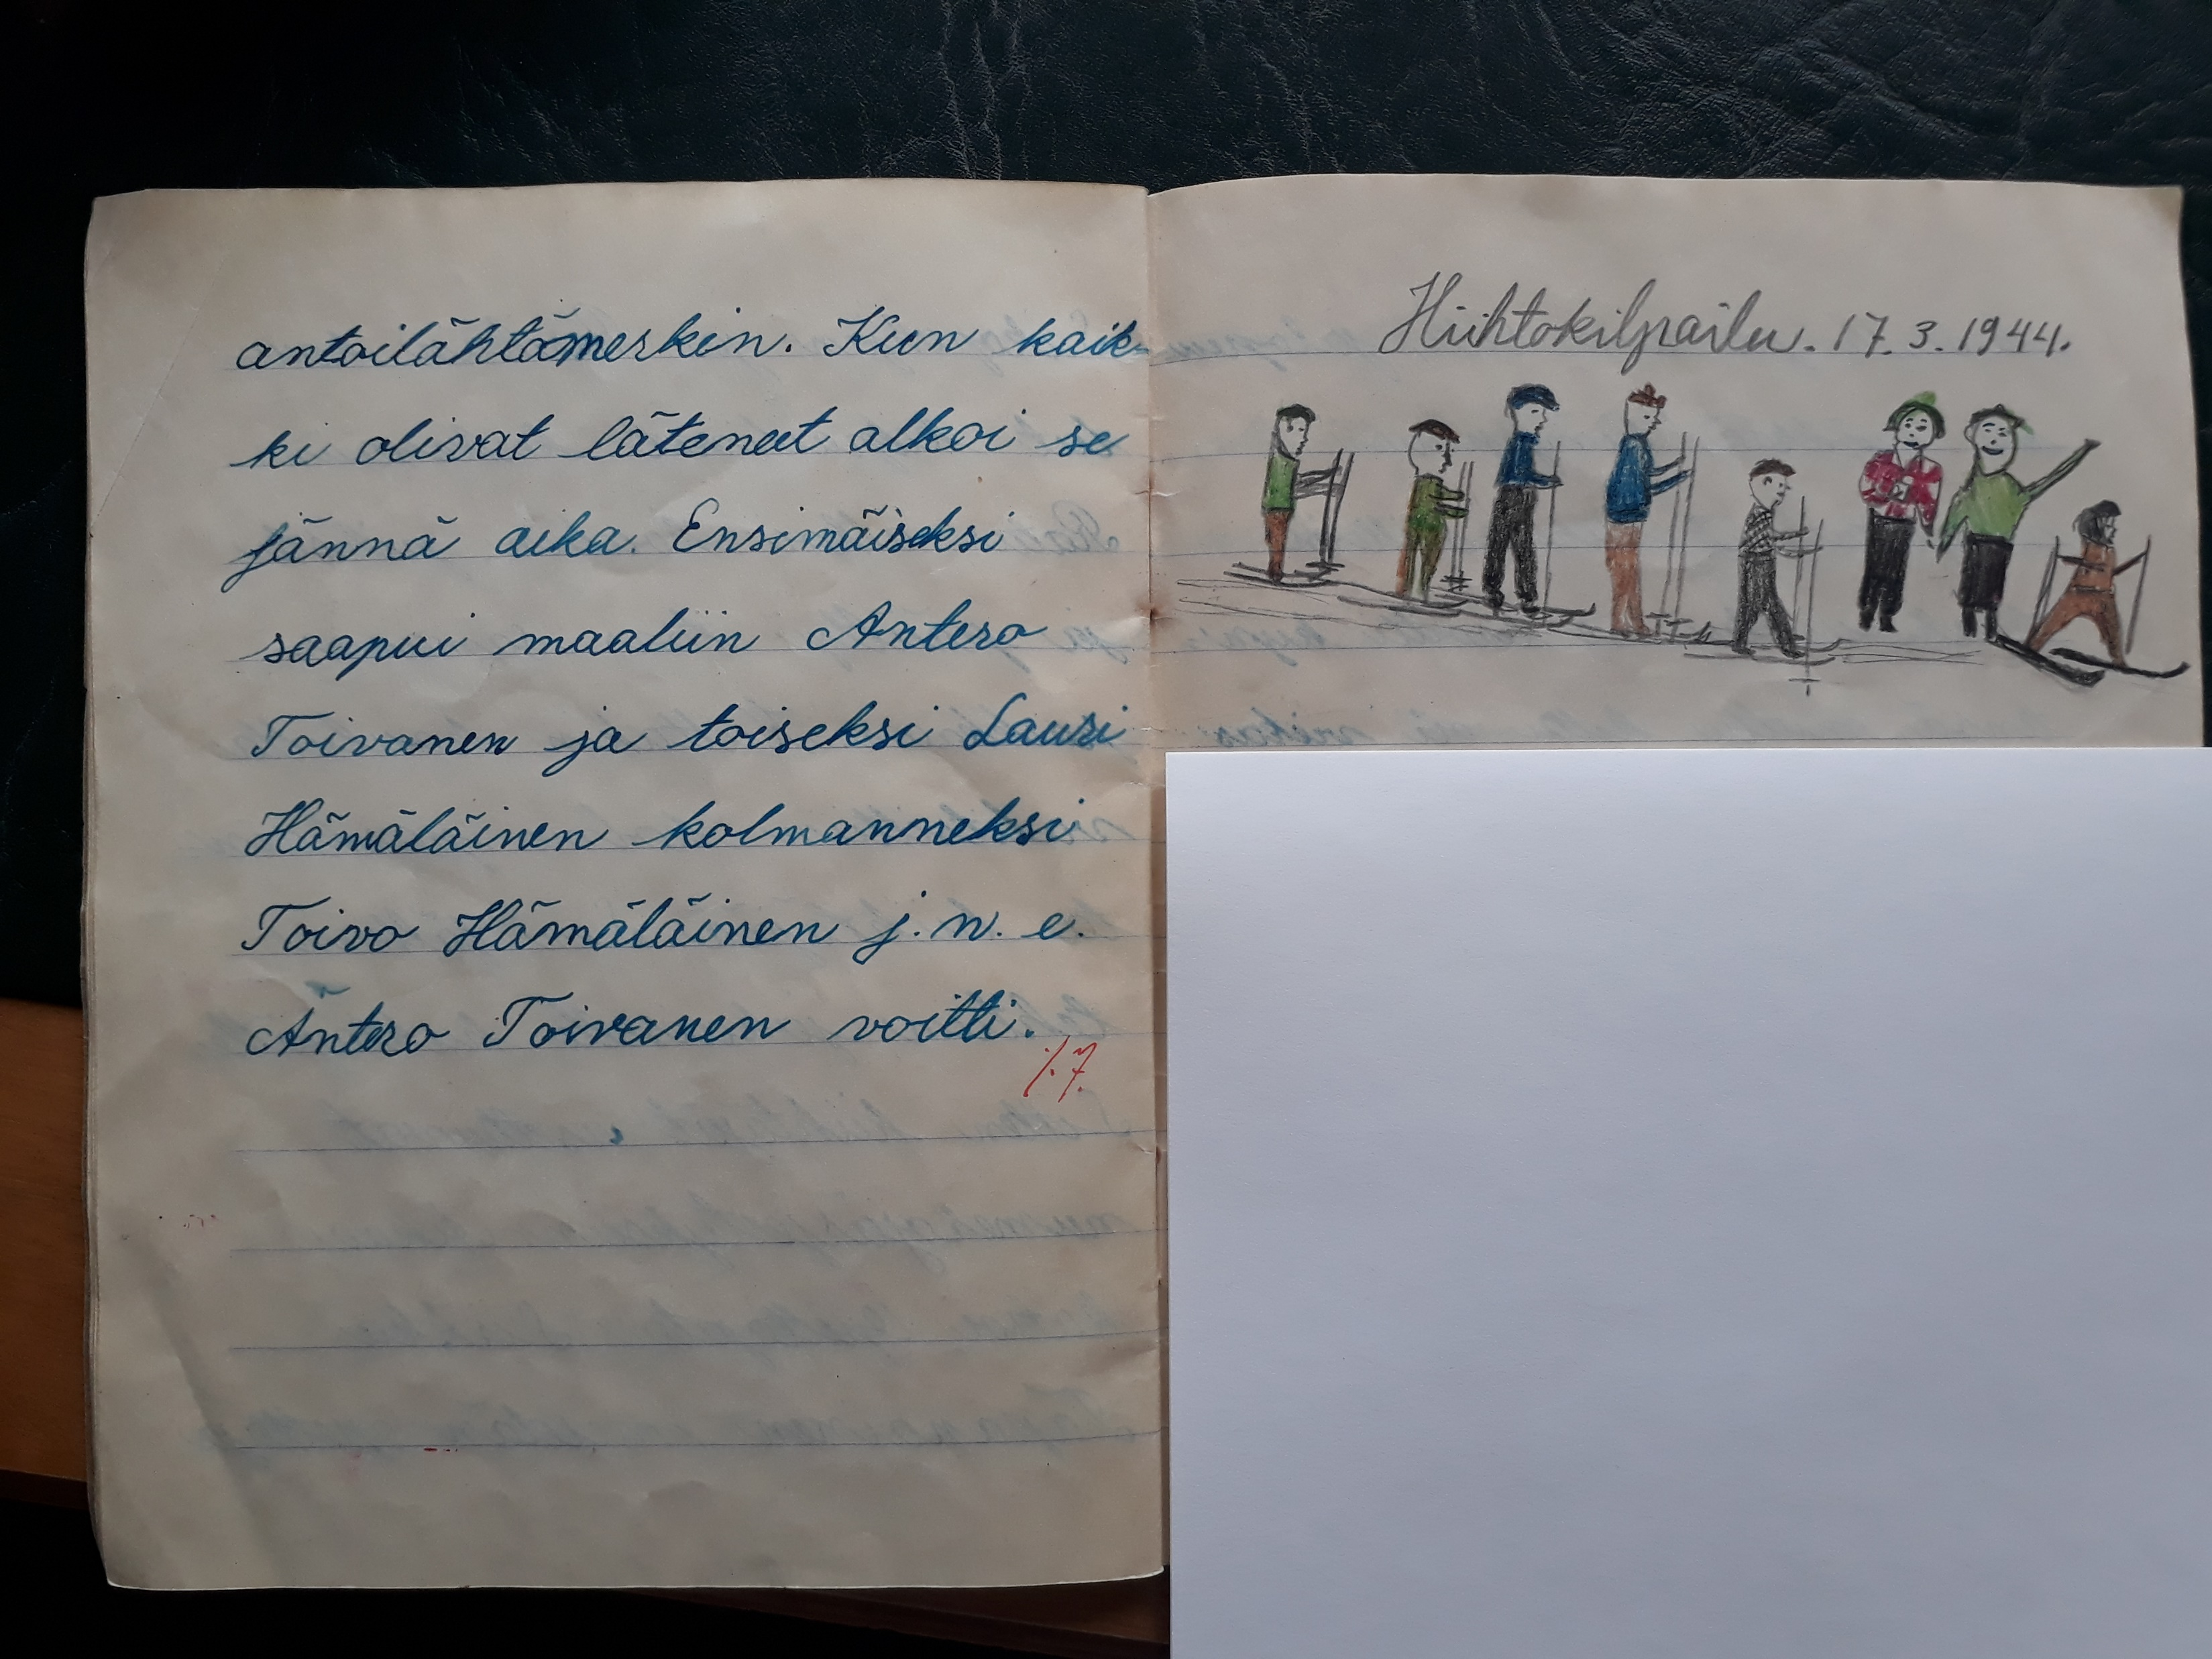 antoilähtömerkin. Kun kaik-
ki olivat läteneet alkoi se
jännä aika. Ensimäiseksi
saapui maaliin Antero
Toivanen ja toiseksi Lauri
Hämäläinen kolmanneksi
Toivo Hämäläinen j. n. e.
Antero Toivanen voitti.
Hiihtokilpailu. 17. 3. 1944.